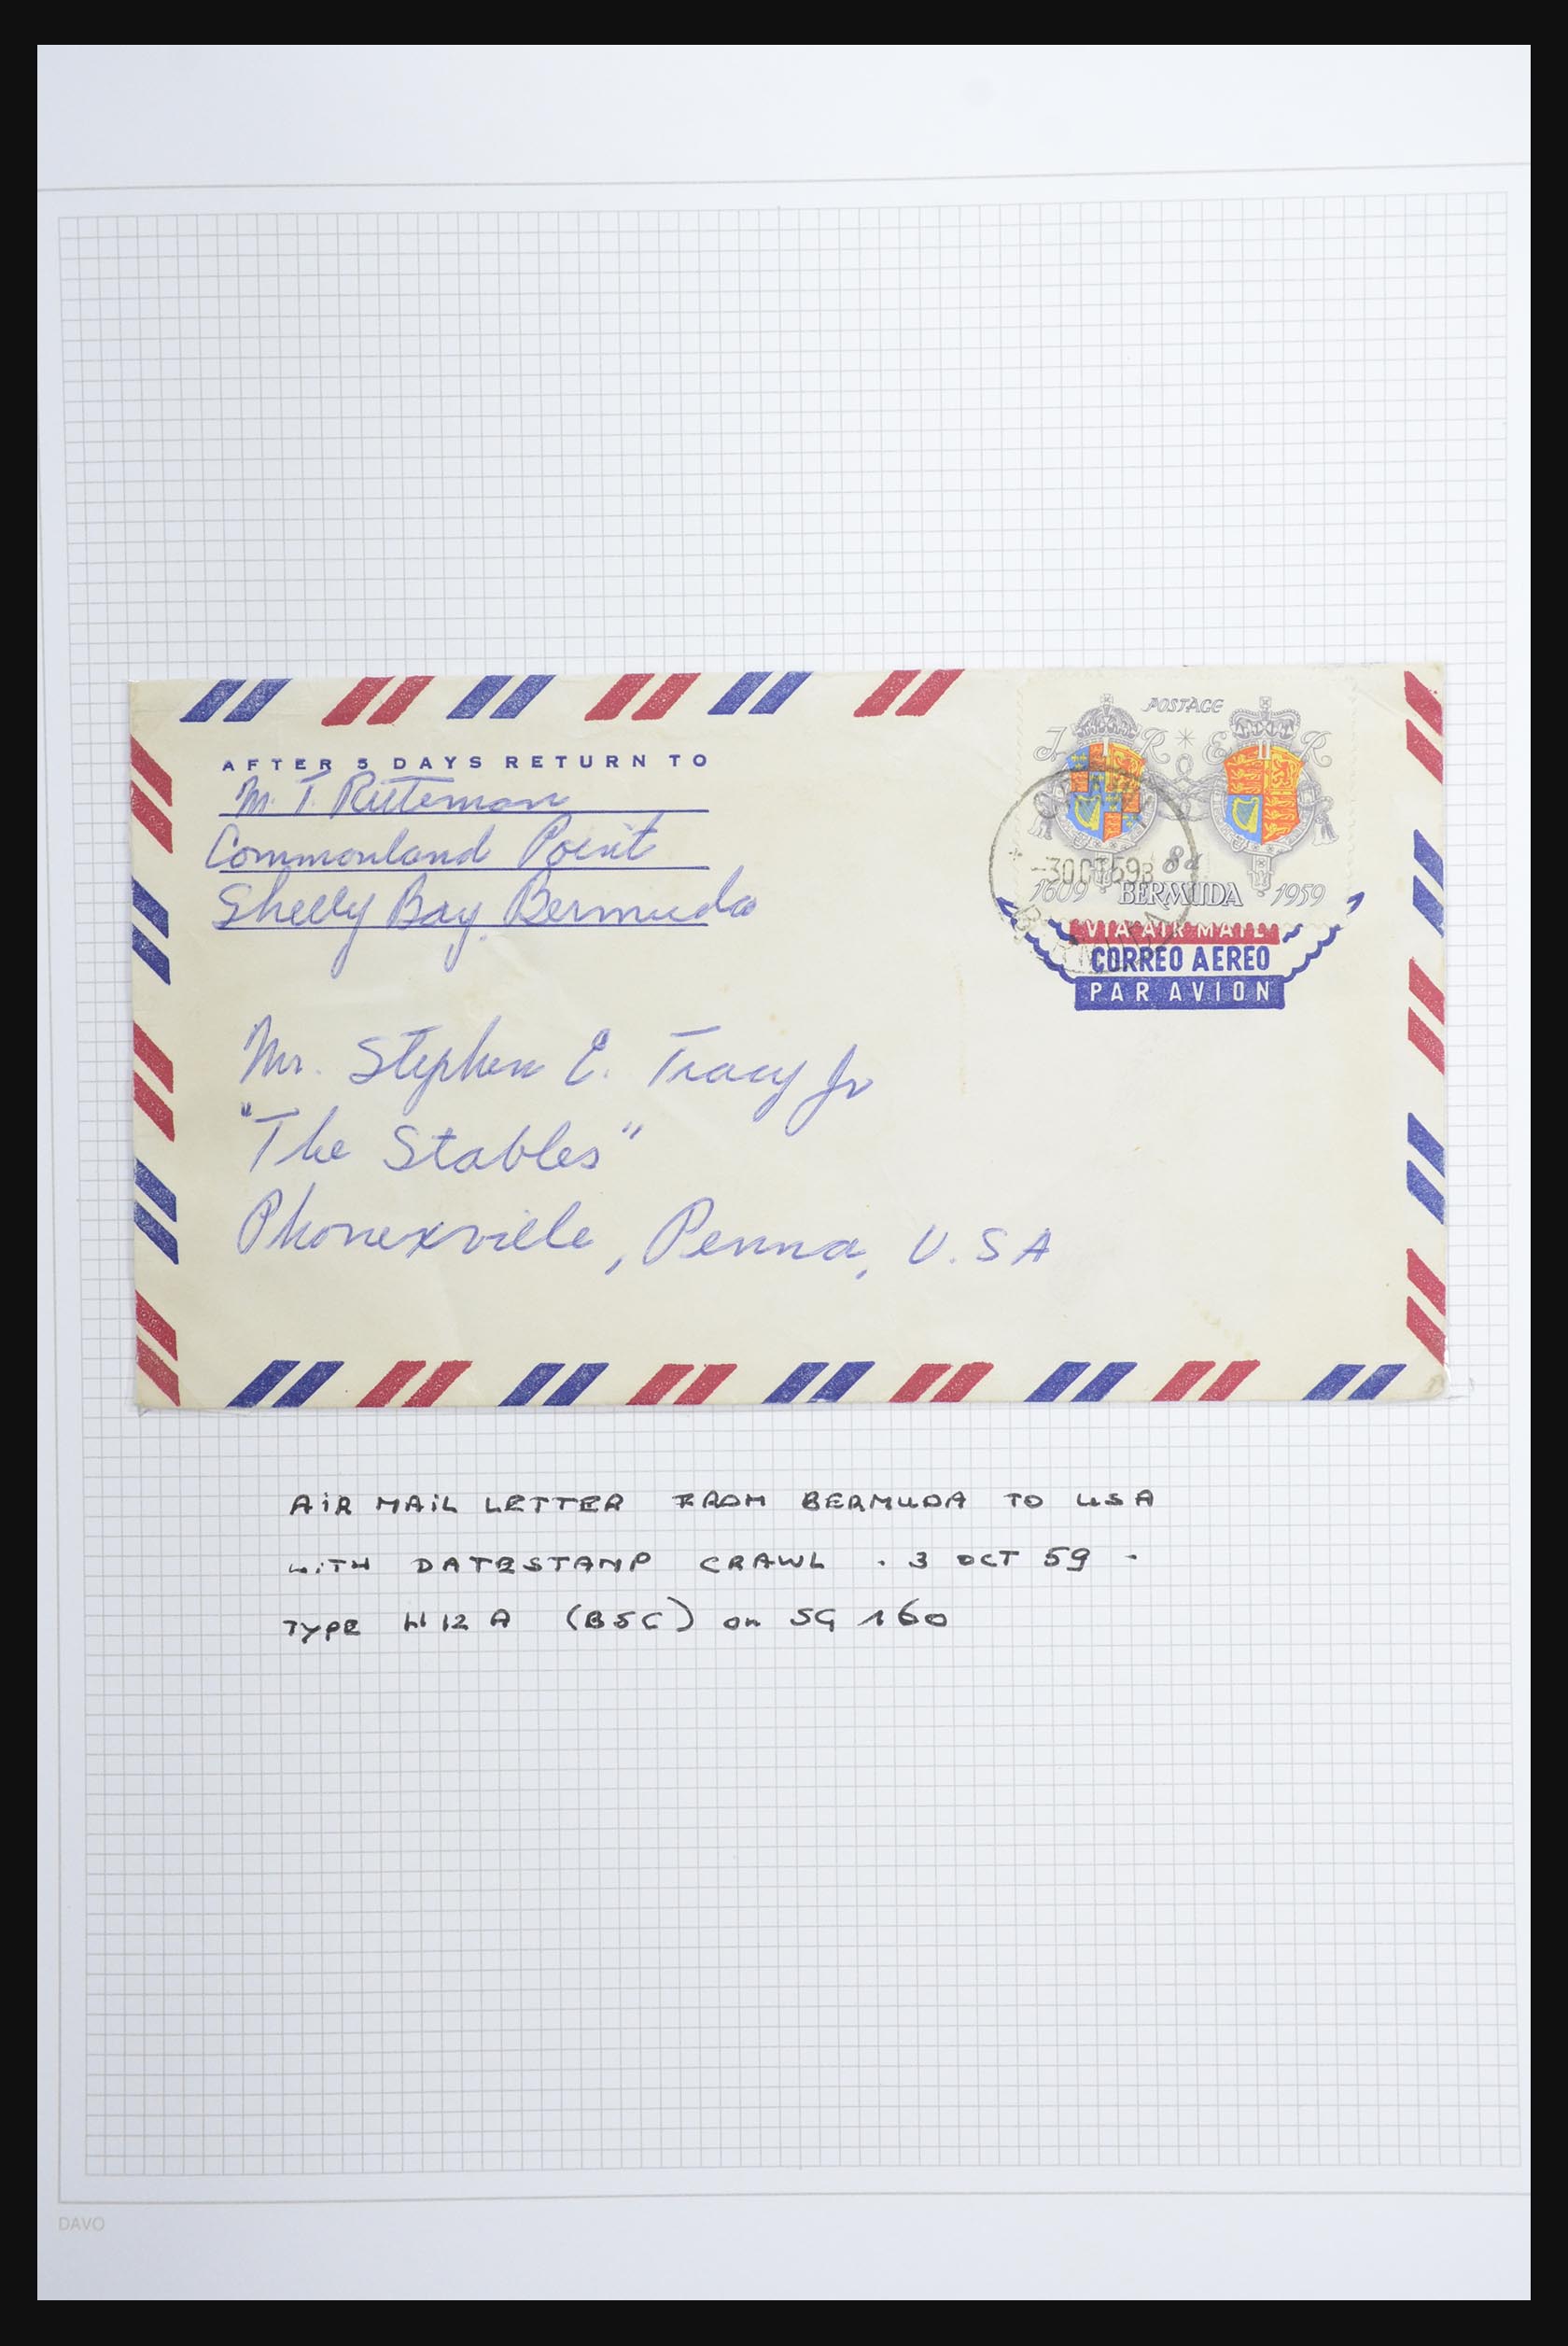 AFTER 5 DAYS RETURN TO
M. T. Ruteman
Commonland Point
Shelly Bay, Bermuda
POSTAGE
J R * E R
8d
1609 BERMUDA 1959
-3 OCT 59 B
VIA AIR MAIL
CORREO AEREO
PAR AVION
Mr. Stephen E. Tracy Jr
"The Stables"
Phonexville, Penna, U.S A
AIR MAIL LETTER FROM BERMUDA TO USA
WITH DATESTAMP CRAWL . 3 OCT 59 -
TYPE H 12 A (BSC) on SG 160
DAVO